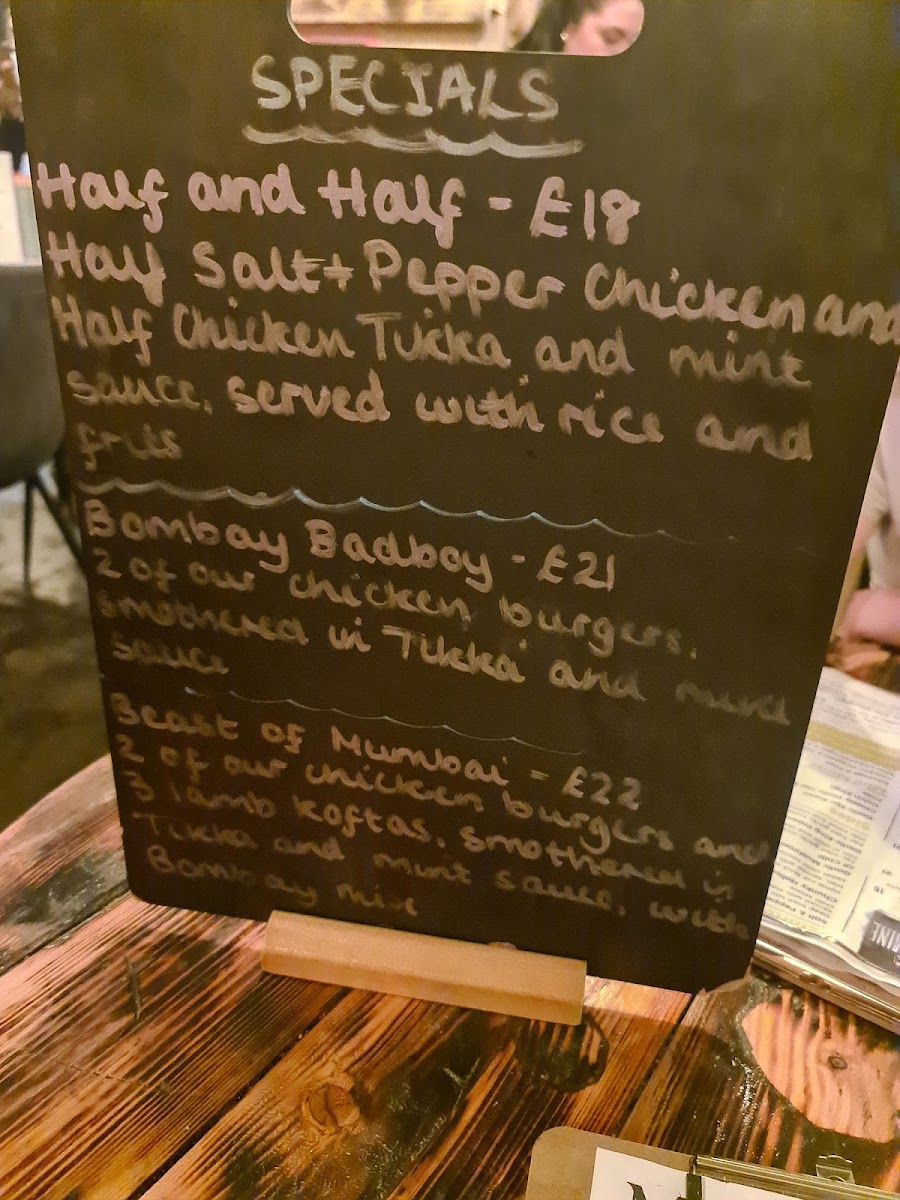 SPECIALS
Half and Half - £18
Half Salt + Pepper Chicken and
Half Chicken Tikka and mint
sauce, served with rice and
fries
Bombay Badboy - £21
2 of our chicken burgers,
smothered in Tikka and mint
sauce
Beast of Mumbai - £22
2 of our chicken burgers and
3 lamb koftas, smothered in
Tikka and mint sauce, with
Bombay mix